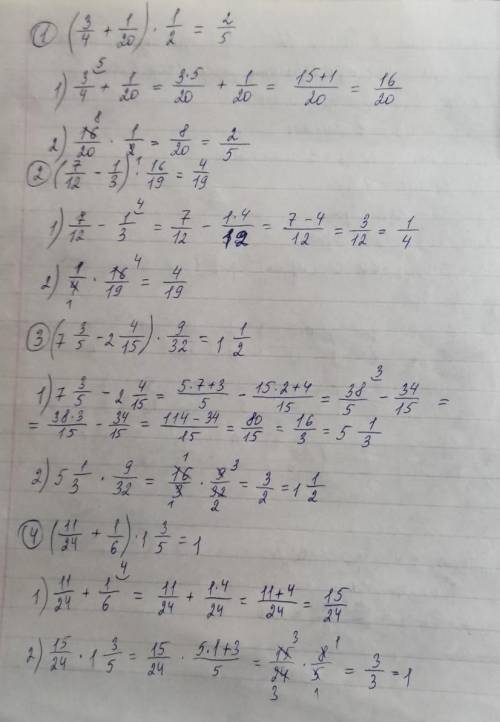 ① (3/4 + 1/20) · 1/2 = 2/5
1) 3/4 ⁵ + 1/20 = 3·5/20 + 1/20 = 15+1/20 = 16/20
2) 16/20 ⁸ · 1/2 = 8/20 = 2/5
② (7/12 - 1/3) · 16/19 = 4/19
1) 7/12 - 1/3 ⁴ = 7/12 - 1·4/12 = 7-4/12 = 3/12 = 1/4
2) 1/4 ₁ · 16/19 ⁴ = 4/19
③ (7 3/5 - 2 4/15) · 9/32 = 1 1/2
1) 7 3/5 - 2 4/15 = 5·7+3/5 - 15·2+4/15 = 38/5 ³ - 34/15 =
= 38·3/15 - 34/15 = 114-34/15 = 80/15 = 16/3 = 5 1/3
2) 5 1/3 · 9/32 = ¹ 16/3 ₁ · 9/32 ³ ₂ = 3/2 = 1 1/2
④ (11/24 + 1/6) · 1 3/5 = 1
1) 11/24 + 1/6 ⁴ = 11/24 + 1·4/24 = 11+4/24 = 15/24
2) 15/24 · 1 3/5 = 15/24 · 5·1+3/5 = 15/24 ³ ₃ · 8/5 ¹ ₁ = 3/3 = 1